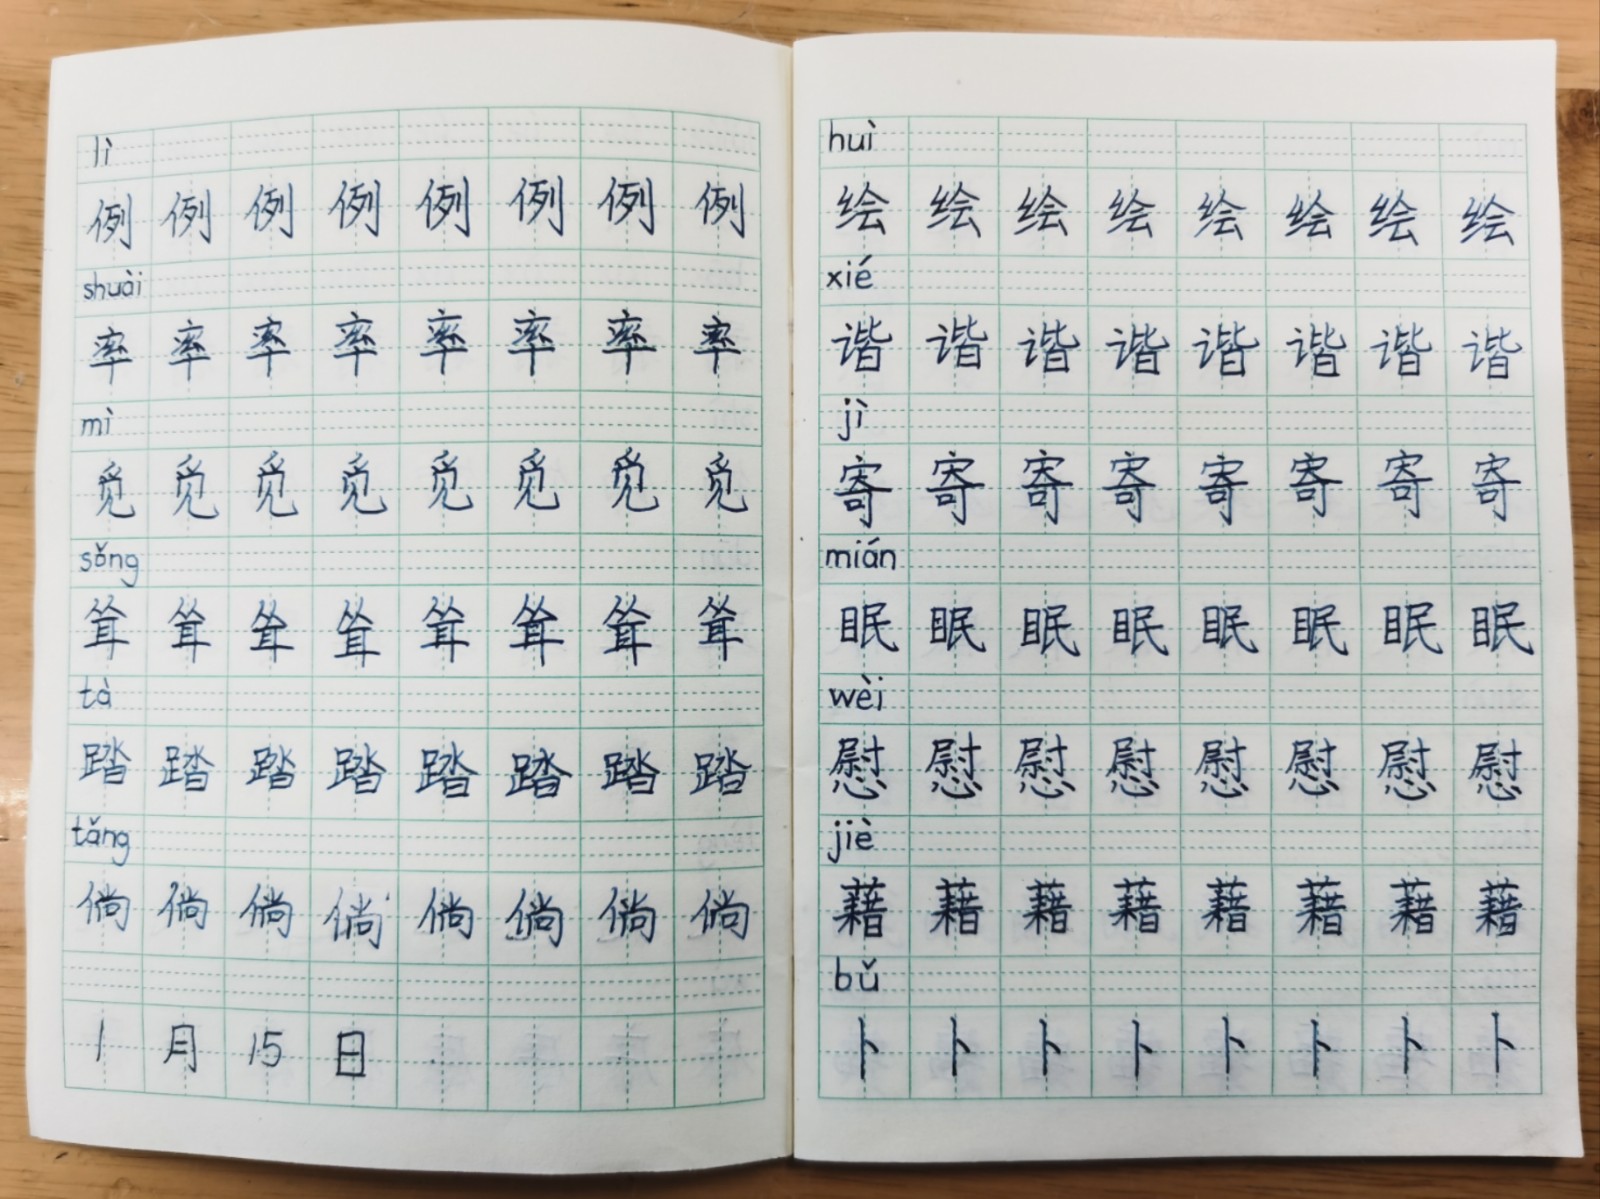 lì
例 例 例 例 例 例 例 例
shuài
率 率 率 率 率 率 率 率
mì
觅 觅 觅 觅 觅 觅 觅 觅
sǒng
耸 耸 耸 耸 耸 耸 耸 耸
tà
踏 踏 踏 踏 踏 踏 踏 踏
tǎng
倘 倘 倘 倘 倘 倘 倘 倘
1 月 15 日
huì
绘 绘 绘 绘 绘 绘 绘 绘
xié
谐 谐 谐 谐 谐 谐 谐 谐
jì
寄 寄 寄 寄 寄 寄 寄 寄
mián
眠 眠 眠 眠 眠 眠 眠 眠
wèi
慰 慰 慰 慰 慰 慰 慰 慰
jiè
藉 藉 藉 藉 藉 藉 藉 藉
bǔ
卜 卜 卜 卜 卜 卜 卜 卜